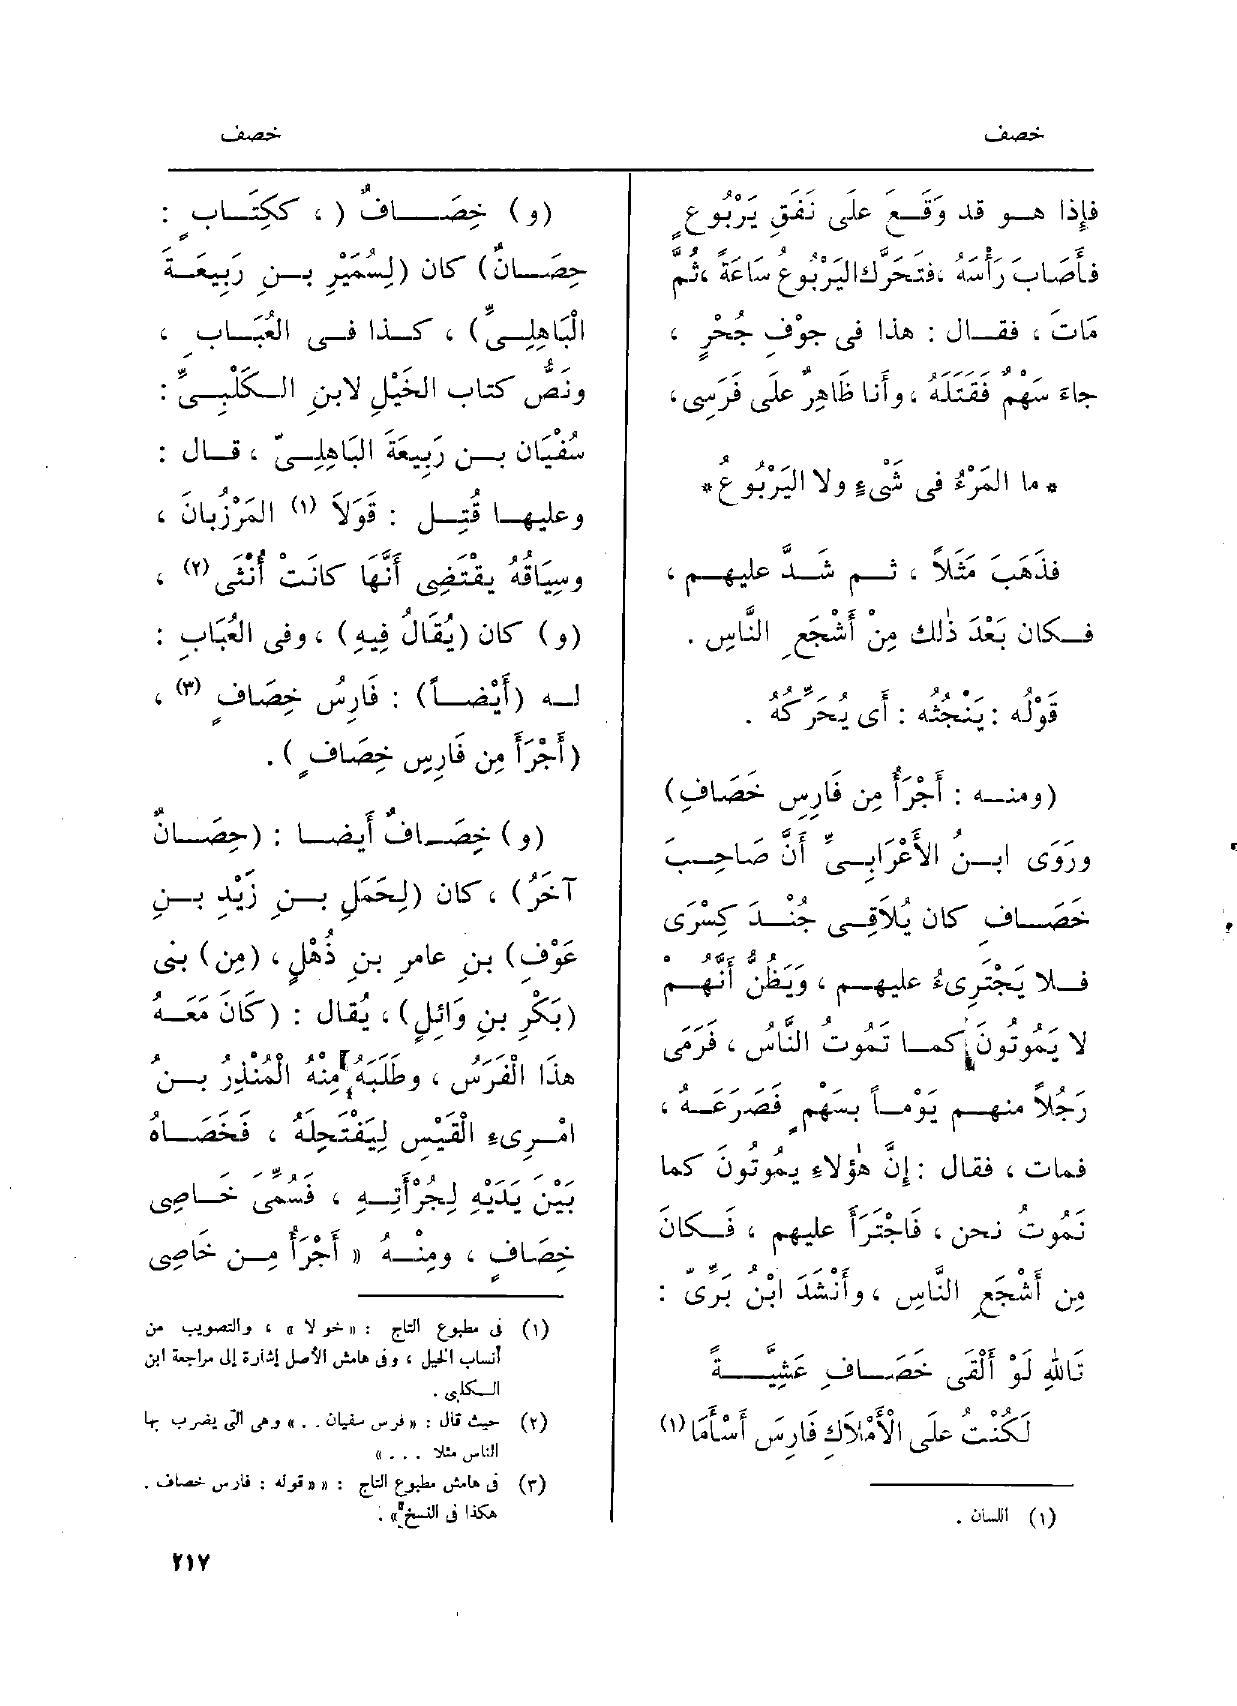 خصف
خصف
فإِذا هـو قد وَقَـعَ علَى نَفَقِ يَرْبُوعٍ
فأَصَابَ رَأْسَهُ ،فتَحَرَّكَ اليَرْبُوعُ سَاعَةً ،ثُمَّ
مَاتَ ، فقـال : هذا فى جوْفِ جُحْرٍ ،
جاءَ سَهْمٌ فَقَتَلَهُ ، وأَنا ظَاهِرٌ علَى فَرَسِى ،
* ما المَرْءُ فى شَىْءٍ ولا اليَرْبُوعُ *
فذَهَبَ مَثَلاً ، ثـم شَـدَّ عليهـم ،
فـكان بَعْدَ ذٰلك مِنْ أَشْجَعِ النَّاسِ .
قَوْلُه : يَنْجُثُه : أَى يُحَرِّكُهُ .
(ومنـه : أَجْرَأُ مِن فَارِسِ خَصَافِ)
ورَوَى ابـنُ الأَعْرَابِـىِّ أَنَّ صَاحِـبَ
خَصَـافِ كان يُلاَقِـى جُنْـدَ كِسْرَى
فـلا يَجْتَرِىءُ عليهـم ، وَيَظُنُّ أَنَّهُـمْ
لا يَمُوتُونَ كمـا تَمُوتُ النَّاسُ ، فَرَمَى
رَجُلاً منهـم يَوْمـاً بسَهْمٍ فَصَرَعَـهُ ،
فمات ، فقال : إِنَّ هٰؤلاءِ يمُوتُونَ كما
نَمُوتُ نحن ، فَاجْتَرَأَ عليهم ، فَـكانَ
مِن أَشْجَعِ النَّاسِ ، وأَنْشَدَ ابْنُ بَرِّىّ :
تَاللهِ لَوْ أَلْقَى خَصَـافِ عَشِيَّـــةً
لَكُنْتُ علَى الْأَمْلَاكِ فَارِسَ أَسْأَمَا (١)
(١) اللسان .
(و) خِصَـــافٌ ( ، ككِتَـابٍ :
حِصَـانٌ) كان (لِسُمَيْرِ بـنِ رَبِيعَـةَ
الْبَاهِلِـىِّ) ، كـذا فـى العُبَـابِ ،
ونَصُّ كتاب الخَيْلِ لابنِ الـكَلْبِـىِّ :
سُفْيَان بـن رَبِيعَةَ البَاهِلِـىّ ، قـال :
وعليهـا قُتِـل : قَوَلاَ (١) المَرْزُبانَ ،
وسِيَاقُهُ يقْتَضِى أَنَّهَا كانَتْ أُنْثَى (٢) ،
(و) كان (يُقَالُ فِيهِ) ، وفى العُبَابِ :
لـه (أَيْضـاً) : فَارِسُ خِصَافٍ (٣) ،
(أَجْرَأُ مِن فَارِسِ خِصَافٍ) .
(و) خِصَـافٌ أَيضـا : (حِصَـانٌ
آخَرُ) ، كان (لِحَمَلِ بـنِ زَيْدِ بـنِ
عَوْفِ) بنِ عامرِ بنِ ذُهْلٍ ، (مِن) بنى
(بَكْرِ بنِ وَائلٍ) ، يُقال : (كَانَ مَعَـهُ
هذَا الْفَرَسُ ، وطَلَبَهُ مِنْهُ الْمُنْذِرُ بـنُ
امْـرِىءِ الْقَيْسِ لِيَفْتَحِلَهُ ، فَخَصَـاهُ
بَيْنَ يَدَيْهِ لِجُرْأَتِـهِ ، فَسُمِّىَ خَـاصِى
خِصَافٍ ، ومِنْـهُ « أَجْرَأُ مِـن خَاصِى
(١) فى مطبوع التاج : «خولا » ، والتصويب من
أنساب الخيل ، وفى هامش الأصل إشارة إلى مراجعة ابن
الـكلبى .
(٢) حيث قال : «فرس سفيان . . » وهى التى يضرب بها
الناس مثلا . . . »
(٣) فى هامش مطبوع التاج : « «قوله : فارس خصاف .
هكذا فى النسخ» .
٢١٧